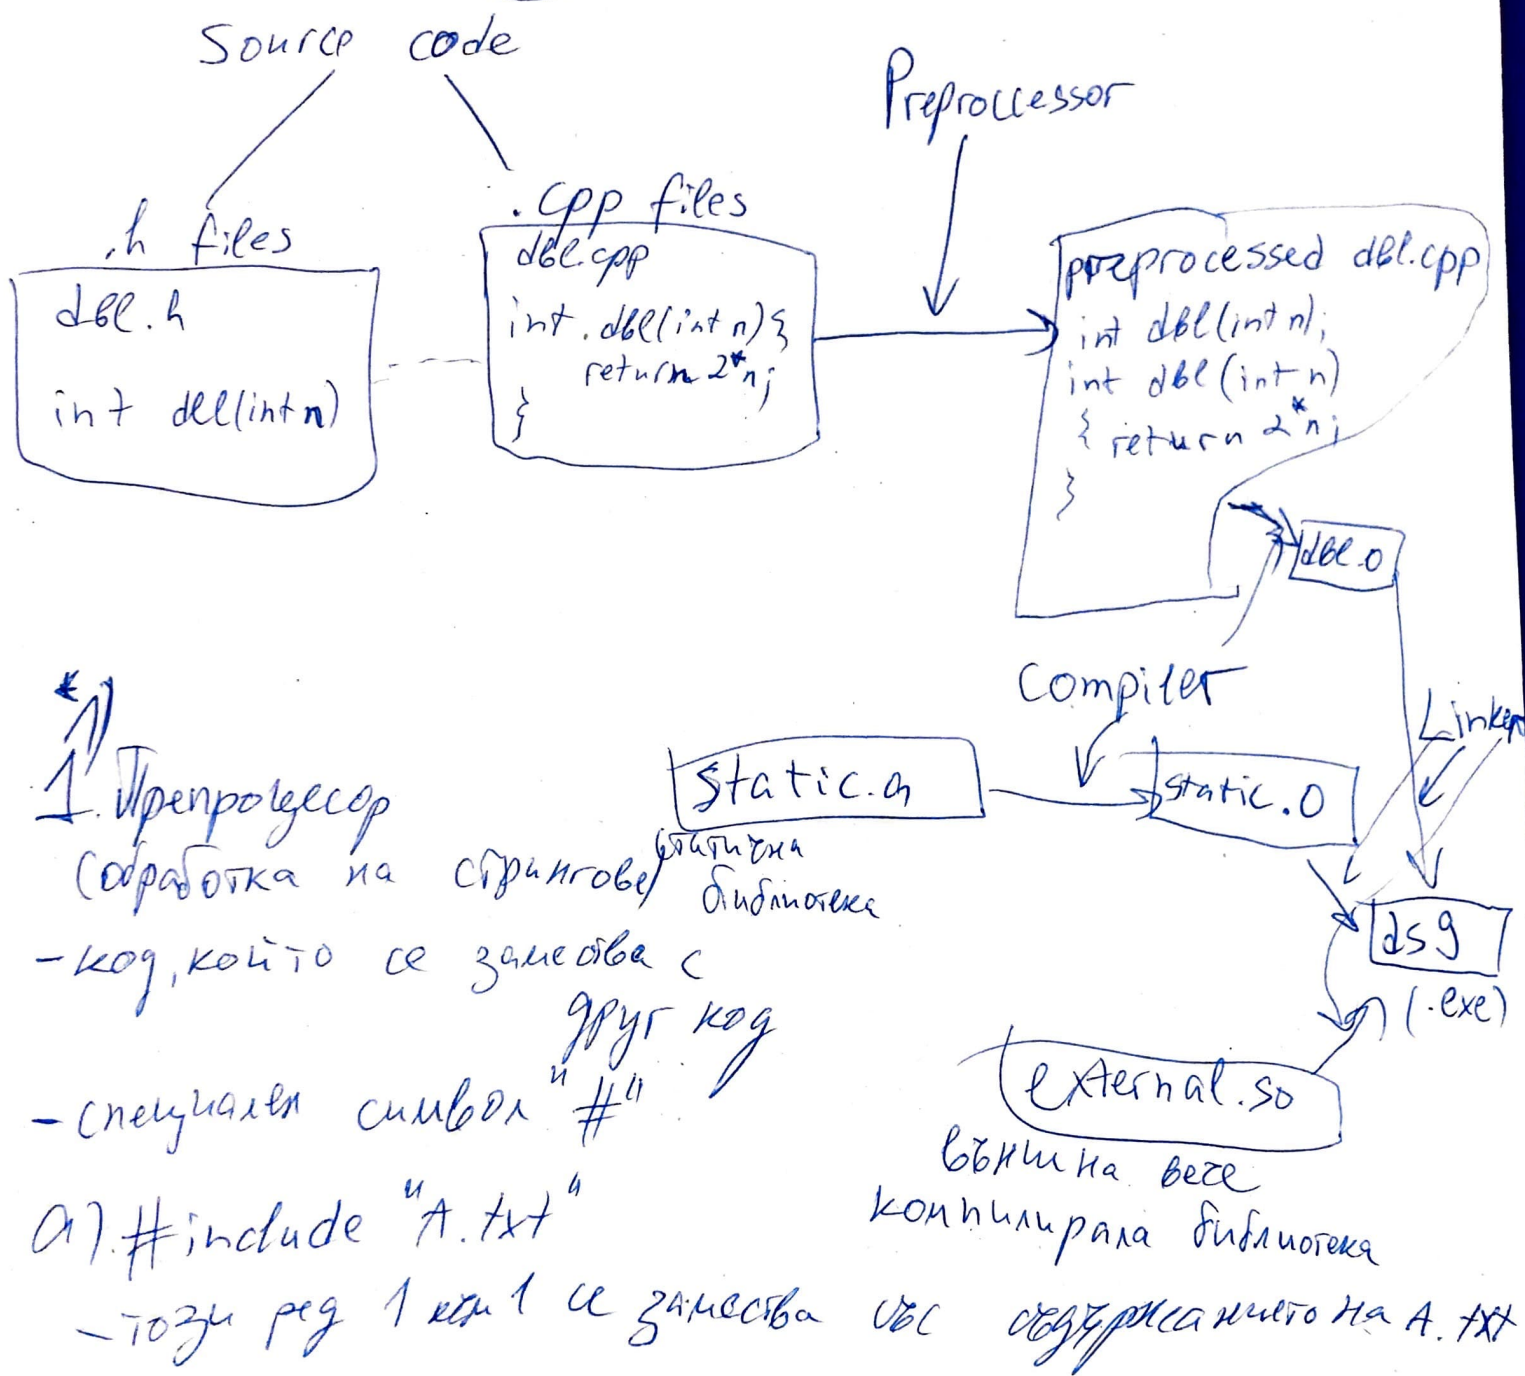 Source code
Preproccessor
.h files
.cpp files
dbl.h
int dbl(int n)
dbl.cpp
int dbl(int n){
return 2*n;
}
preprocessed dbl.cpp
int dbl(int n);
int dbl(int n)
{ return 2*n;
}
dbl.o
Compiler
Linker
static.a
static.o
статична
библиотека
(.exe)
external.so
външна вече
компилирала библиотека
1. Препроцесор
(обработка на стрингове)
- код, който се замества с
друг код
- специален символ "#"
а). #include "A.txt"
- този ред 1 към 1 се замества със съдържанието на A.txt